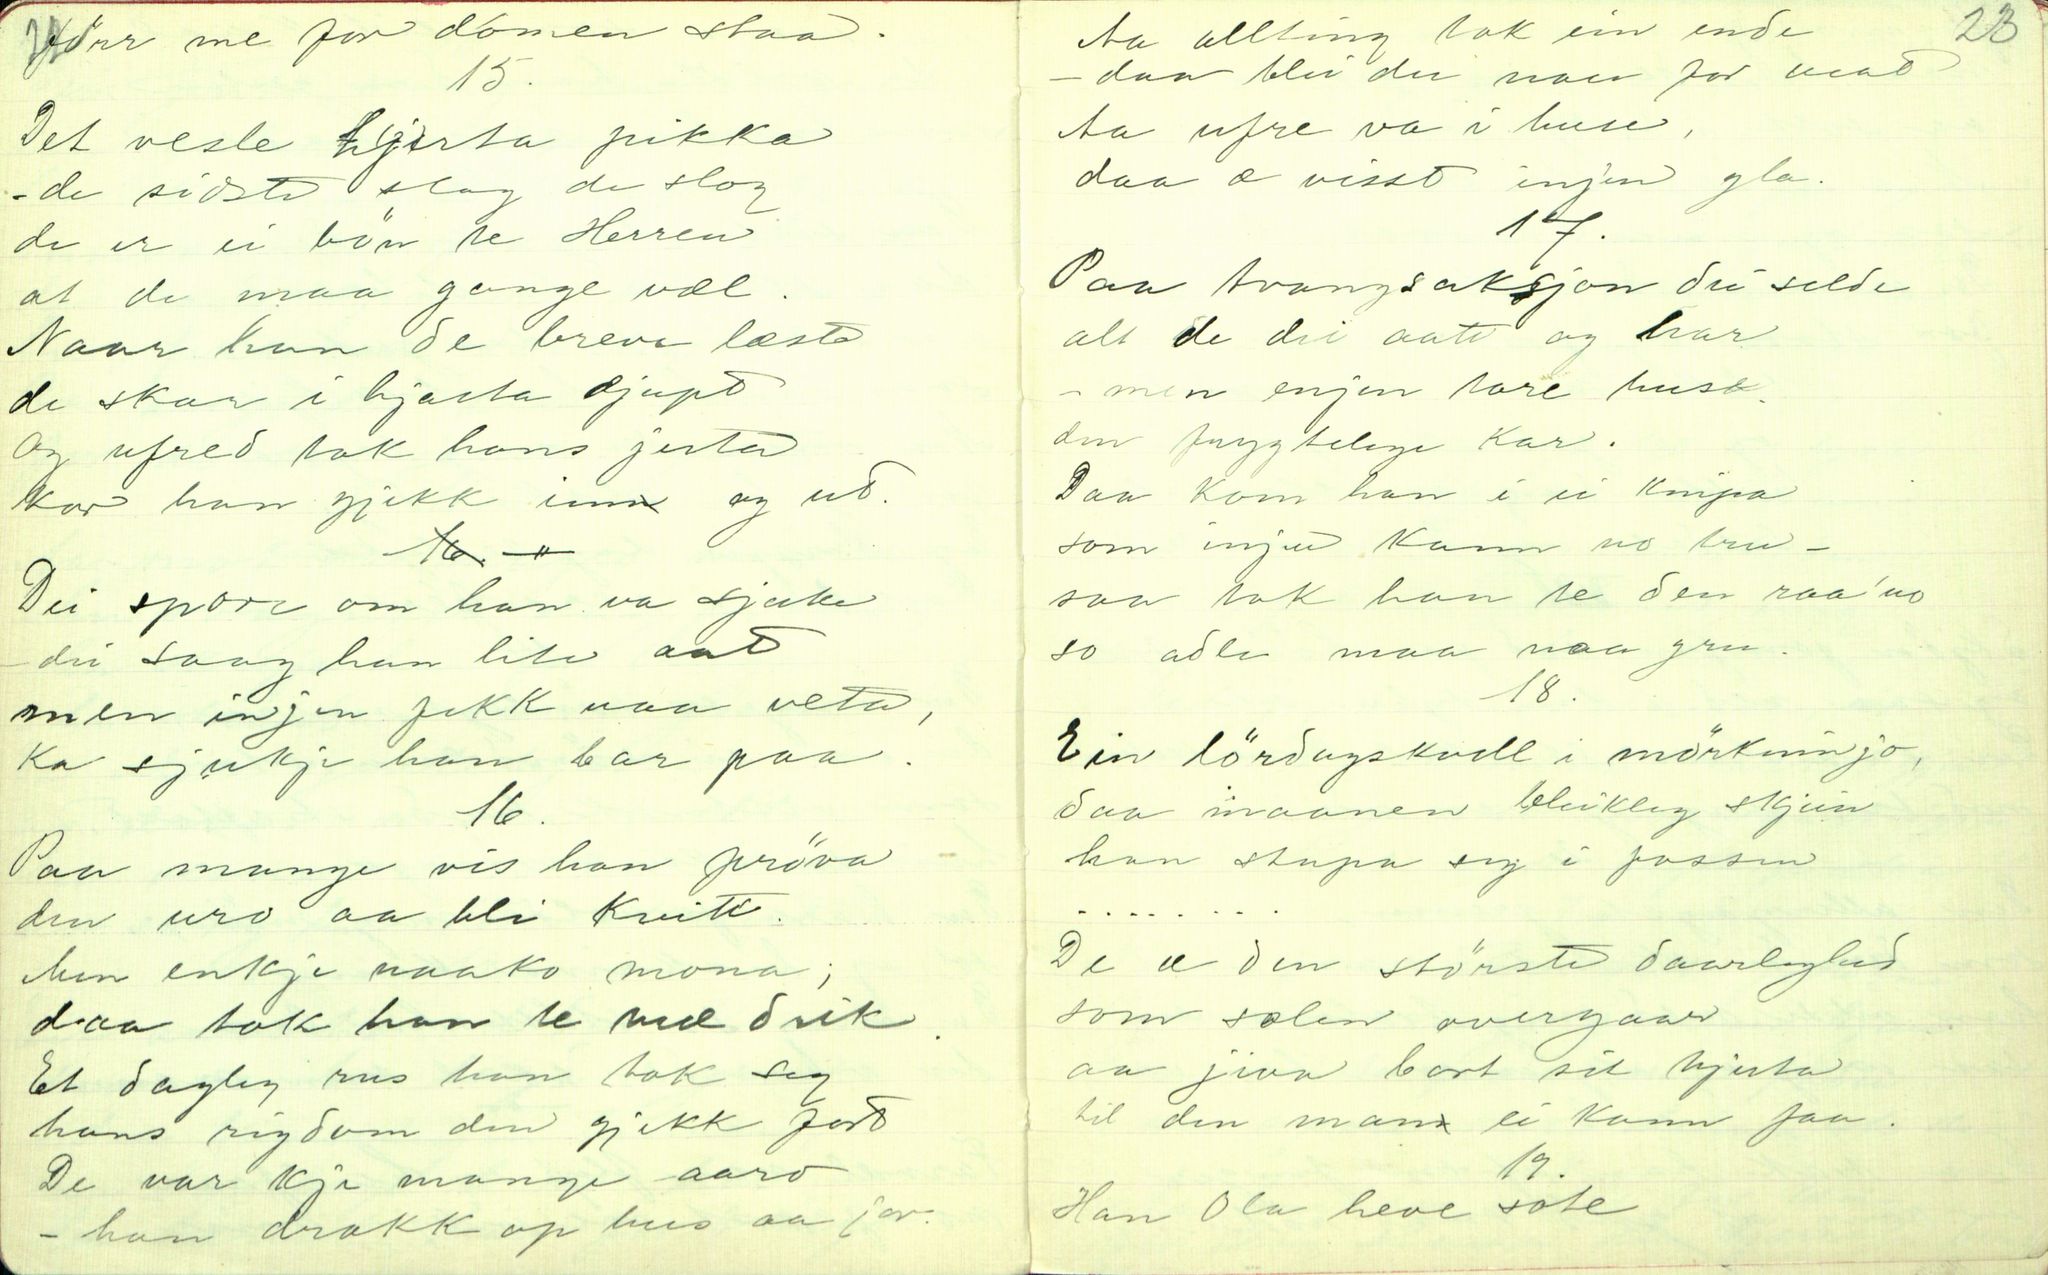 22
förr me for domen staa.
15.
Det vesle hjerta pikka
- de sidste slag de slog
de er ei bön te Herren
at de maa gange væl.
Naar han de breve læste
de skar i hjarta djupt
og ufred tok hans jerta
kor han gjekk inn og ut.
16. "
Dei spore om han va sjuke
- dei saag han lite aat
men injen fekk naa veta,
ka sjukje han bar paa.
16.
Paa mange vis han pröva
den uro aa bli kvitt.
Men enkje naako mona;
daa tok han te me drik.
Et dagleg rus han tok seg
hans rigdom den gjekk fort
De var kje mange aaro
- han drakk op hus aa jor.
23
Aa allting tok ein ende
- daa blei dei nou for mat
Aa ufre va i huse,
daa æ visst injen gla.
17.
Paa tvangsaksjon dei selde
alt de dei aatte og har
- men enjen tore huse
den frygtelege kar.
Daa kom han i ei knipa
som injen kann no tru -
saa tok han te den raa'no
so adle maa naa gru.
18.
Ein lördagskvell i mörkninjo,
daa maanen bleikleg skjein
han stupa seg i fossen
........
De æ den störste daarleghed
som solen overgaar
aa jiva bort sit hjerta
til den man ei kann faa.
19.
Han Ola heve sote